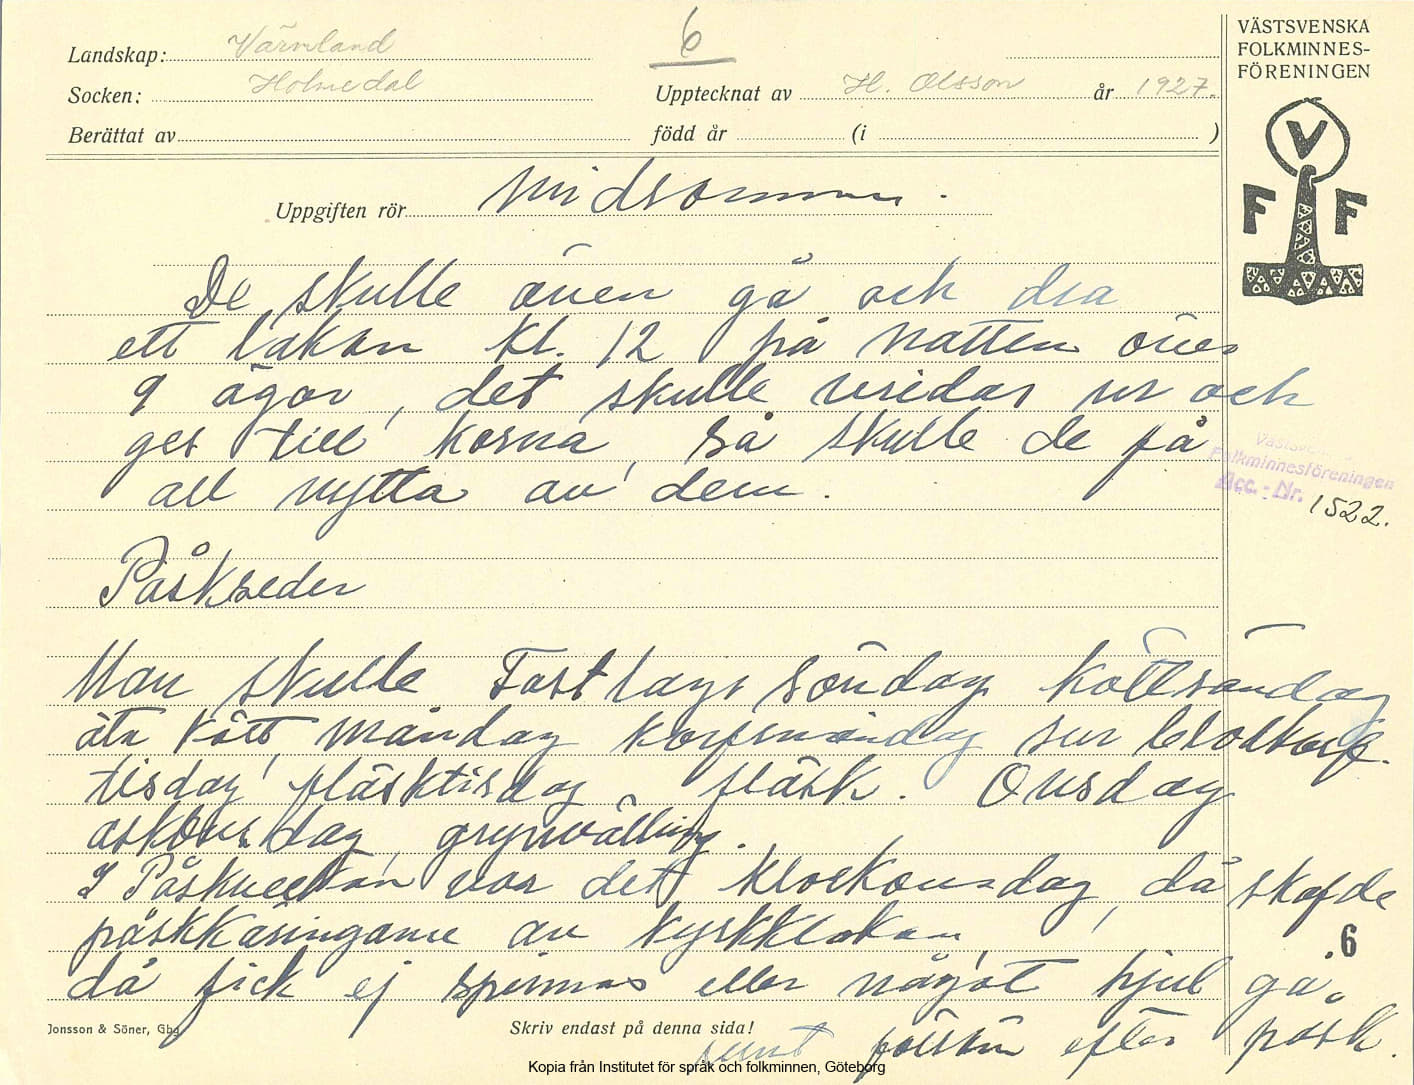 Landskap: Värmland
6
Socken: Holmedal
Upptecknat av H. Olsson år 1927.
Berättat av
född år (i )
VÄSTSVENSKA
FOLKMINNES-
FÖRENINGEN
V
F F
Uppgiften rör Midsommar.
De skulle även gå och dra
ett lakan kl. 12 på natten över
9 ägor, det skulle vridas ur och
ges till korna, så skulle de få
all nytta av dem.
Västsvenska
Folkminnesföreningen
Acc.-Nr. 1522.
Påskseder
Man skulle Fastlags söndag köttsöndag
äta kött, måndag korfmåndag sur blodkorf.
tisdag, fläsktisdag fläsk. Onsdag
askonsdag, grynvälling.
I Påskveckan var det klockonsdag, då skafde
påskkäringarne av kyrkklockan,
då fick ej spinnas eller något hjul gå.
samt först efter påsk.
6
Jonsson & Söner, Gbg
Skriv endast på denna sida!
Kopia från Institutet för språk och folkminnen, Göteborg